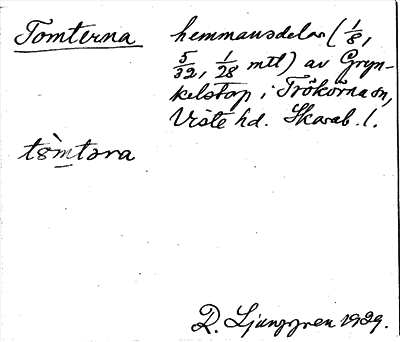 Tomterna hemmansdelar (1/8,
5/32, 1/28 mtl) av Gryn-
kelstorp i Trökörna sn,
Viste hd. Skarab. l.
tòmtəra
R. Ljunggren 1929.